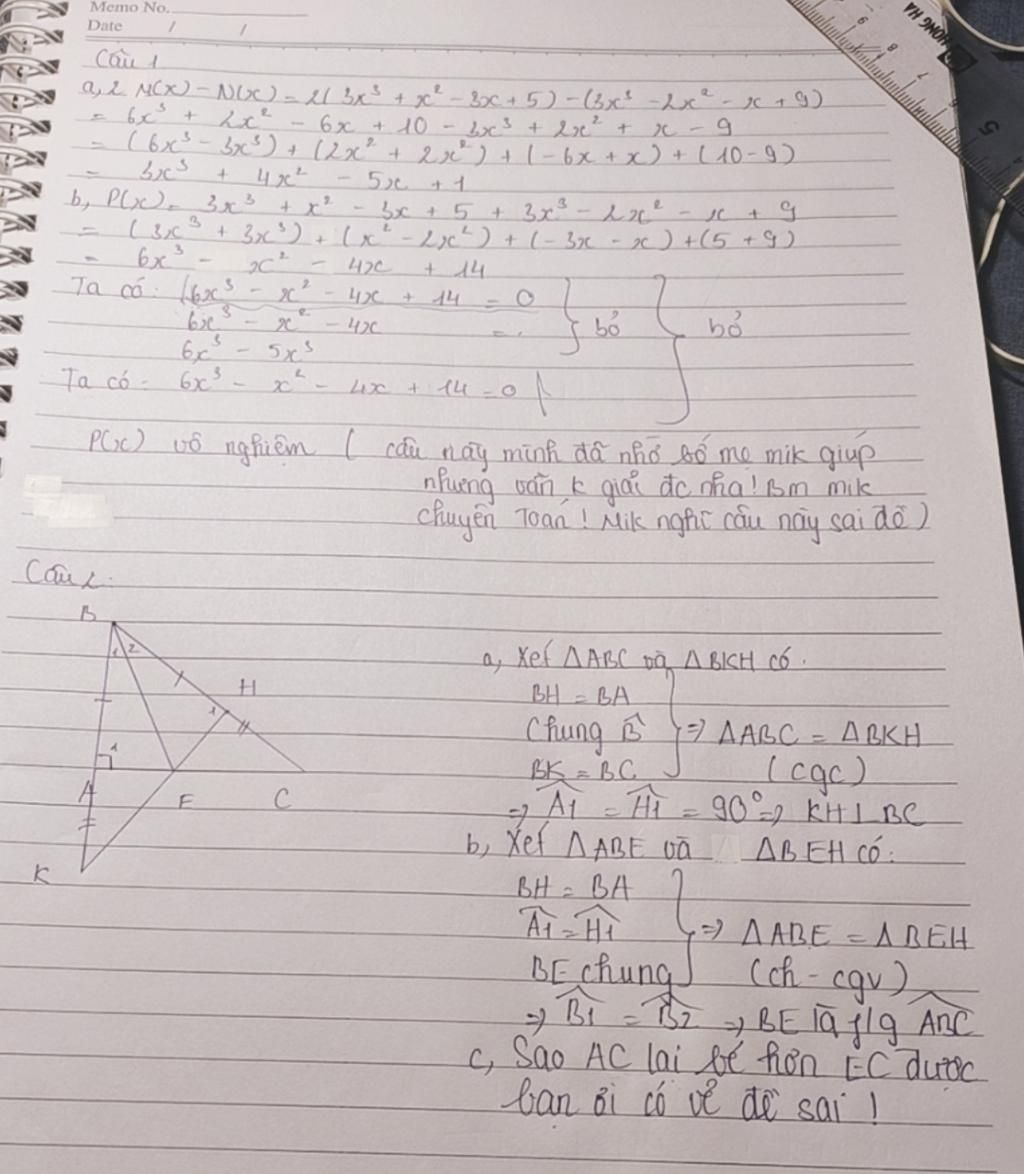 Memo No.
Date / /
HONG HA
Câu 1
a, 2 M(x) - N(x) = 2(3x³ + x² - 3x + 5) - (3x³ - 2x² - x + 9)
= 6x³ + 2x² - 6x + 10 - 3x³ + 2x² + x - 9
= (6x³ - 3x³) + (2x² + 2x²) + (-6x + x) + (10 - 9)
= 3x³ + 4x² - 5x + 1
b, P(x) = 3x³ + x² - 3x + 5 + 3x³ - 2x² - x + 9
= (3x³ + 3x³) + (x² - 2x²) + (-3x - x) + (5 + 9)
= 6x³ - x² - 4x + 14
Ta có: (6x³ - x² - 4x + 14 = 0
6x³ - x² - 4x = . } bỏ } bỏ
6x³ - 5x³
Ta có - 6x³ - x² - 4x + 14 = 0
P(x) vô nghiệm ( câu này mình đã nhờ bố mẹ mik giúp
nhưng vẫn k giải đc nha! Bm mik
chuyên Toán! Mik nghĩ câu này sai đề)
Câu 2.
B
1 2
H
1
1
A
E
C
K
a, Xét ΔABC và ΔBKH có.
BH = BA
Chung B̂ } => ΔABC = ΔBKH
BK = BC (cgc)
=> Â1 = Ĥ1 = 90° => KH ⊥ BC
b, Xét ΔABE và ΔBEH có:
BH = BA
Â1 = Ĥ1 } => ΔABE = ΔBEH
BE chung (ch - cgv)
=> B̂1 = B̂2 => BE là f/g ABC
c, Sao AC lại bé hơn EC được
bạn ơi có vẻ đề sai !